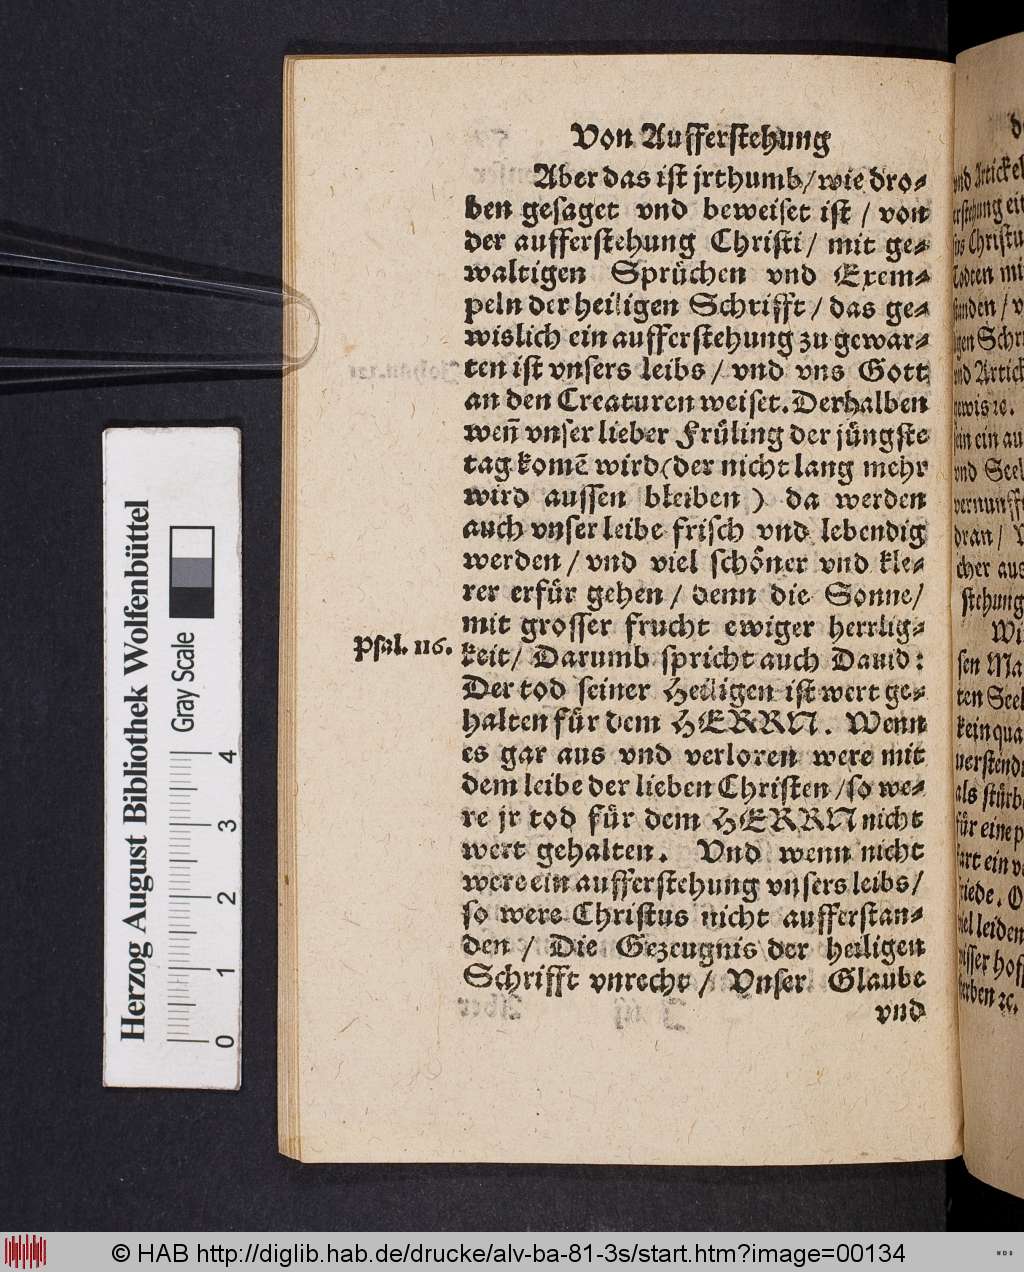 Von Aufferstehung
Aber das ist jrthumb/wie dro⸗
ben gesaget vnd beweiset ist / von
der aufferstehung Christi/ mit ge⸗
waltigen Sprüchen vnd Exem⸗
peln der heiligen Schrifft / das ge⸗
wislich ein aufferstehung zu gewar⸗
ten ist vnsers leibs / vnd vns Gott
an den Creaturen weiset. Derhalben
weñ vnser lieber Früling der jüngste
tag komẽ wird (der nicht lang mehr
wird aussen bleiben) da werden
auch vnser leibe frisch vnd lebendig
werden / vnd viel schöner vnd kle⸗
rer erfür gehen / denn die Sonne/
mit grosser frucht ewiger herrlig⸗
Psal. 116. keit/ Darumb spricht auch Dauid:
Der tod seiner Heiligen ist wert ge⸗
halten für dem HERRN. Wenn
es gar aus vnd verloren were mit
dem leibe der lieben Christen /so we⸗
re jr tod für dem HERRN nicht
wert gehalten. Vnd wenn nicht
were ein aufferstehung vnsers leibs/
so were Christus nicht aufferstan⸗
den / Die Gezeugnis der heiligen
Schrifft vnrecht / Vnser Glaube
vnd
Herzog August Bibliothek Wolfenbüttel
Gray Scale
0 1 2 3 4
© HAB http://diglib.hab.de/drucke/alv-ba-81-3s/start.htm?image=00134